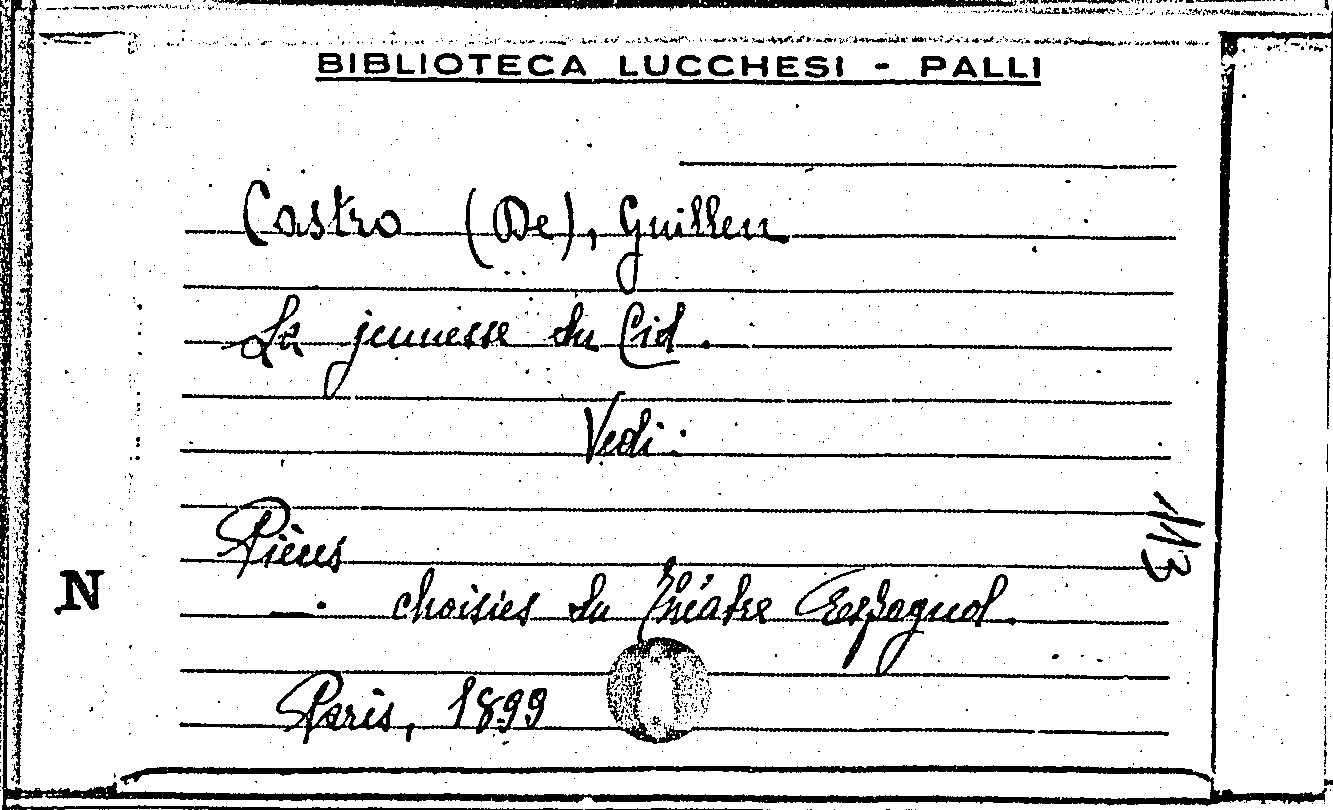 BIBLIOTECA LUCCHESI - PALLI
Castro (De), Guillen
La jeunesse du Cid.
Vedi:
Pièces
choisies du Théatre Espagnol.
Paris, 1899
N